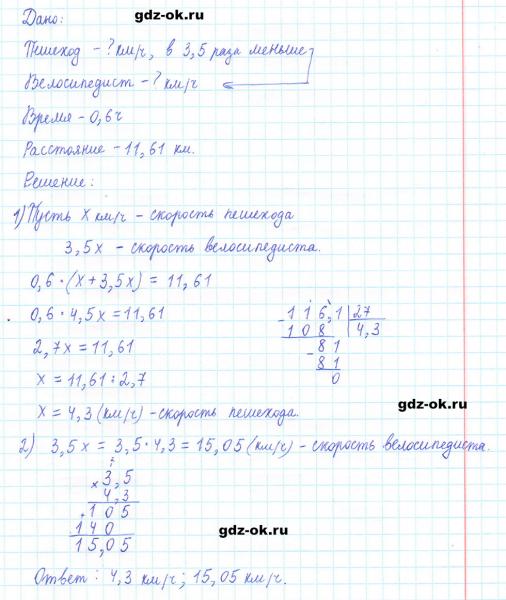 gdz-ok.ru
Дано:
Пешеход - ? км/ч, в 3,5 раза меньше
Велосипедист - ? км/ч
Время - 0,6ч
Расстояние - 11,61 км.
Решение:
1) Пусть x км/ч - скорость пешехода
3,5x - скорость велосипедиста.
0,6 · (x + 3,5x) = 11,61
0,6 · 4,5x = 11,61
2,7x = 11,61
x = 11,61 : 2,7
x = 4,3 (км/ч) - скорость пешехода.
- 1 1 6,1 | 27
1 0 8 | 4,3
- 8 1
8 1
0
gdz-ok.ru
2) 3,5x = 3,5 · 4,3 = 15,05 (км/ч) - скорость велосипедиста.
1
× 3,5
4,3
+ 1 0 5
1 4 0
1 5,0 5
gdz-ok.ru
Ответ: 4,3 км/ч; 15,05 км/ч.